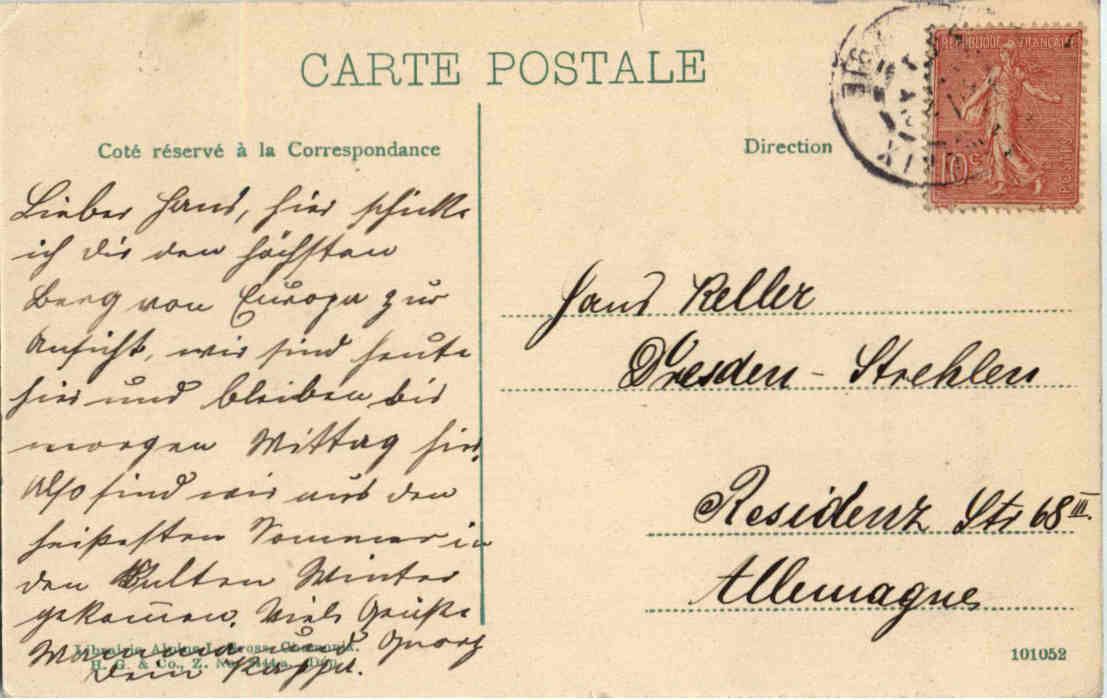 CARTE POSTALE
Coté réservé à la Correspondance
Lieber Hans, hier schicke
ich dir den höchsten
Berg von Europa zur
Ansicht, wir sind heute
hier und bleiben bis
morgen Mittag hier.
Also sind wir aus den
heißesten Sommer in
den kalten Winter
gekom̅en. Viele Grüße
Mamma und Georg
Dein Pappa.
Librairie Alpine L. Gross, Chamonix.
H. G. & Co., Z. No.
Direction
REPUBLIQUE FRANÇAISE
10c
Hans Keller
Dresden - Strehlen
Residenz Str 68 III.
Allemagne
101052